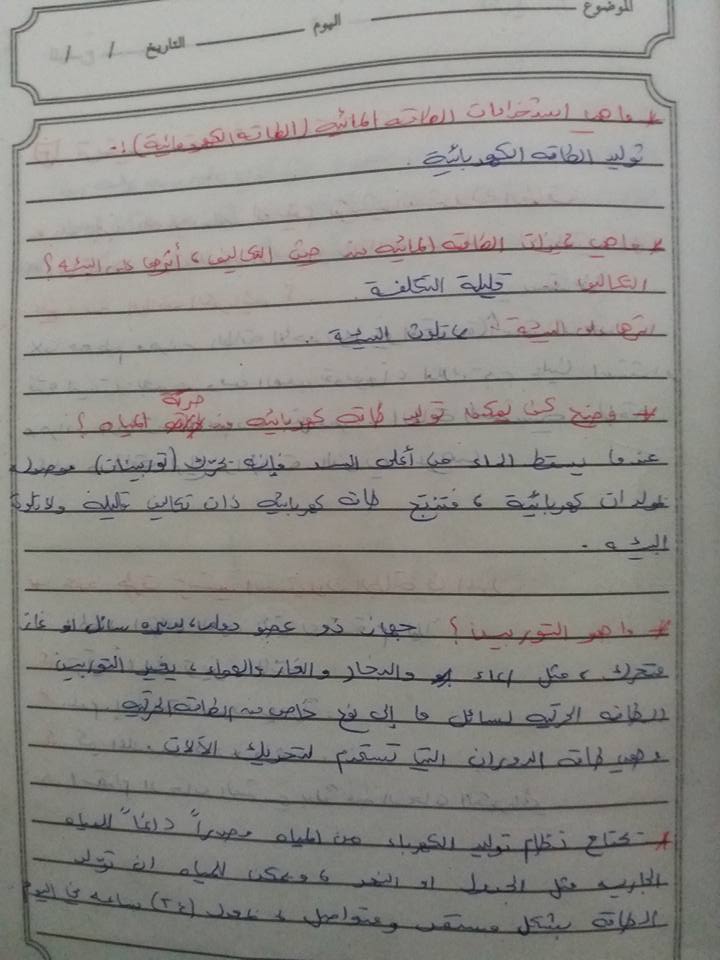 الموضوع
اليوم
التاريخ / /
* ما هي استخدامات الطاقة المائية (الطاقة الكهرومائية) :
توليد الطاقة الكهربائية .
* ما هي مميزات الطاقة المائية من حيث التكاليف ، أثرها على البيئة ؟
التكاليف : قليلة التكلفة .
اثرها على البيئة : لا تلوث البيئة .
* وضح كيف يمكن توليد طاقة كهربائية من حركة المياه ؟
عندما يسقط الماء من أعلى السد فإنه يحرك (توربينات) موصولة
بمولدات كهربائية ، فتنتج طاقة كهربائية ذات تكاليف قليلة ولا تلوث
البيئة .
* ما هو التوربين ؟ جهاز ذو عضو دوار ، يديره سائل او غاز
متحرك ، مثل الماء والبخار والغاز والهواء ، يغير التوربين
الطاقة الحركية لسائل ما إلى نوع خاص من الطاقة الحركية
وهي طاقة الدوران التي تستخدم لتحريك الآلات .
* يحتاج نظام توليد الكهرباء من المياه مصدراً دائماً للمياه
الجارية مثل الجدول او النهر ، ويمكن للمياه ان تولد
الطاقة بشكل مستمر ومتواصل ، طول (٢٤) ساعة في اليوم